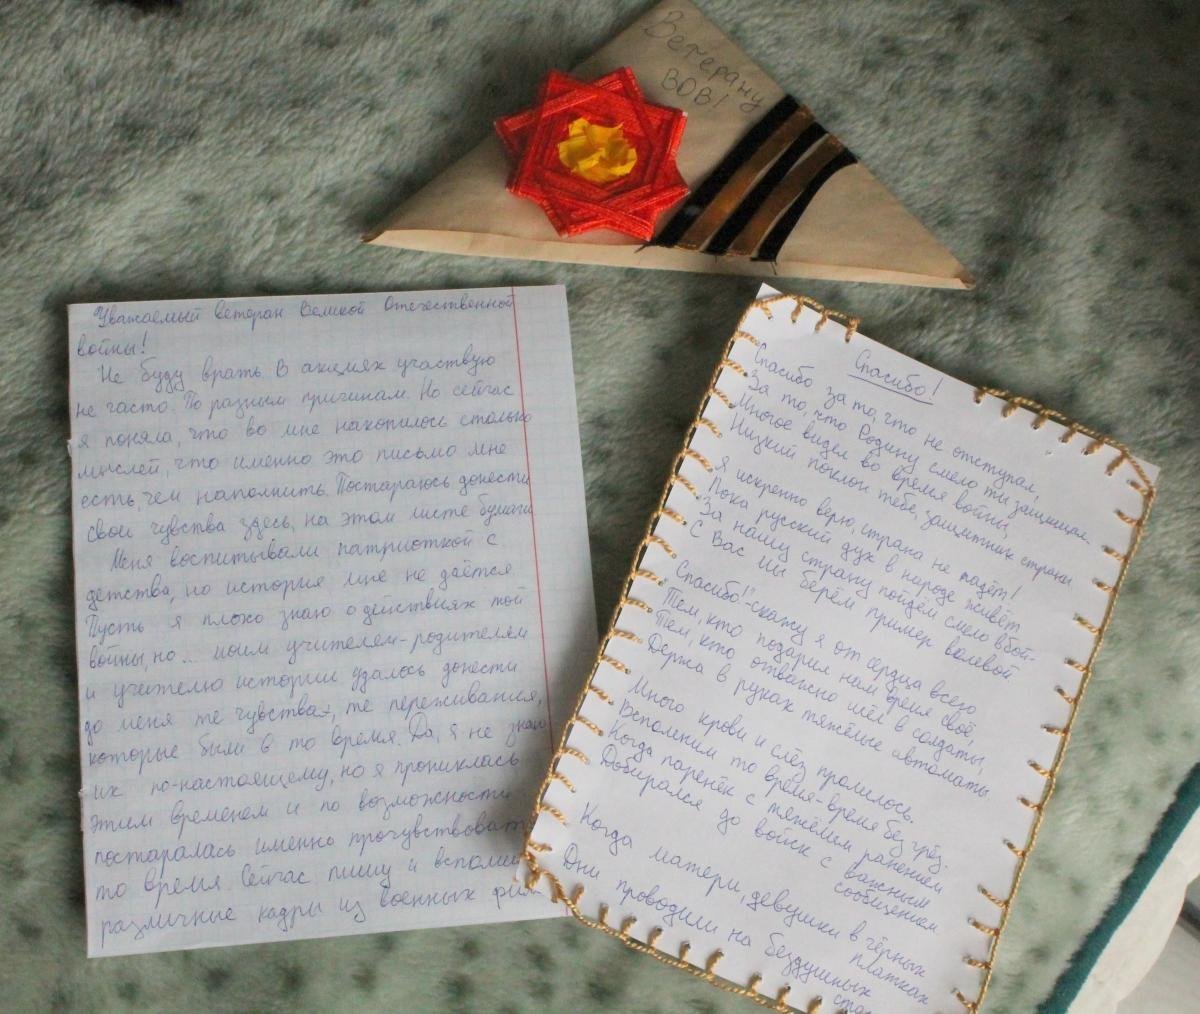 Ветерану
ВОВ!
Уважаемый ветеран Великой Отечественной
войны!
Не буду врать. В акциях участвую
не часто. По разным причинам. Но сейчас
я поняла, что во мне накопилось столько
мыслей, что именно это письмо мне
есть, чем наполнить. Постараюсь донести
свои чувства здесь, на этом листе бумаги
Меня воспитывали патриоткой с
детства, но история мне не даётся
Пусть я плохо знаю о действиях той
войны, но... моим учителям-родителям
и учителю истории удалось донести
до меня те чувства, те переживания,
которые были в то время. Да, я не знаю
их по-настоящему, но я прониклась
этим временем и по возможности
постаралась именно прочувствовать
то время. Сейчас пишу и
различные кадры из военных
Спасибо!
Спасибо за то, что не отступал,
За то, что Родину смело ты защищал.
Многое видел во время войны,
Низкий поклон тебе, защитник страны.
Я искренно верю, страна не падёт!
Пока русский дух в народе живёт
За нашу страну пойдём смело в бой-
С Вас мы берём пример волевой
"Спасибо!"-скажу я от сердца всего
Тем, кто подарил нам время своё,
Тем, кто отважно шёл в солдаты,
Держа в руках тяжёлые автоматы.
Много крови и слёз пролилось.
Вспомним то время-время без грёз.
Когда паренёк с тяжёлым ранением
Добирался до войск с важным
сообщением
Когда матери, девушки в чёрных
платках
Дни проводили на бездушных